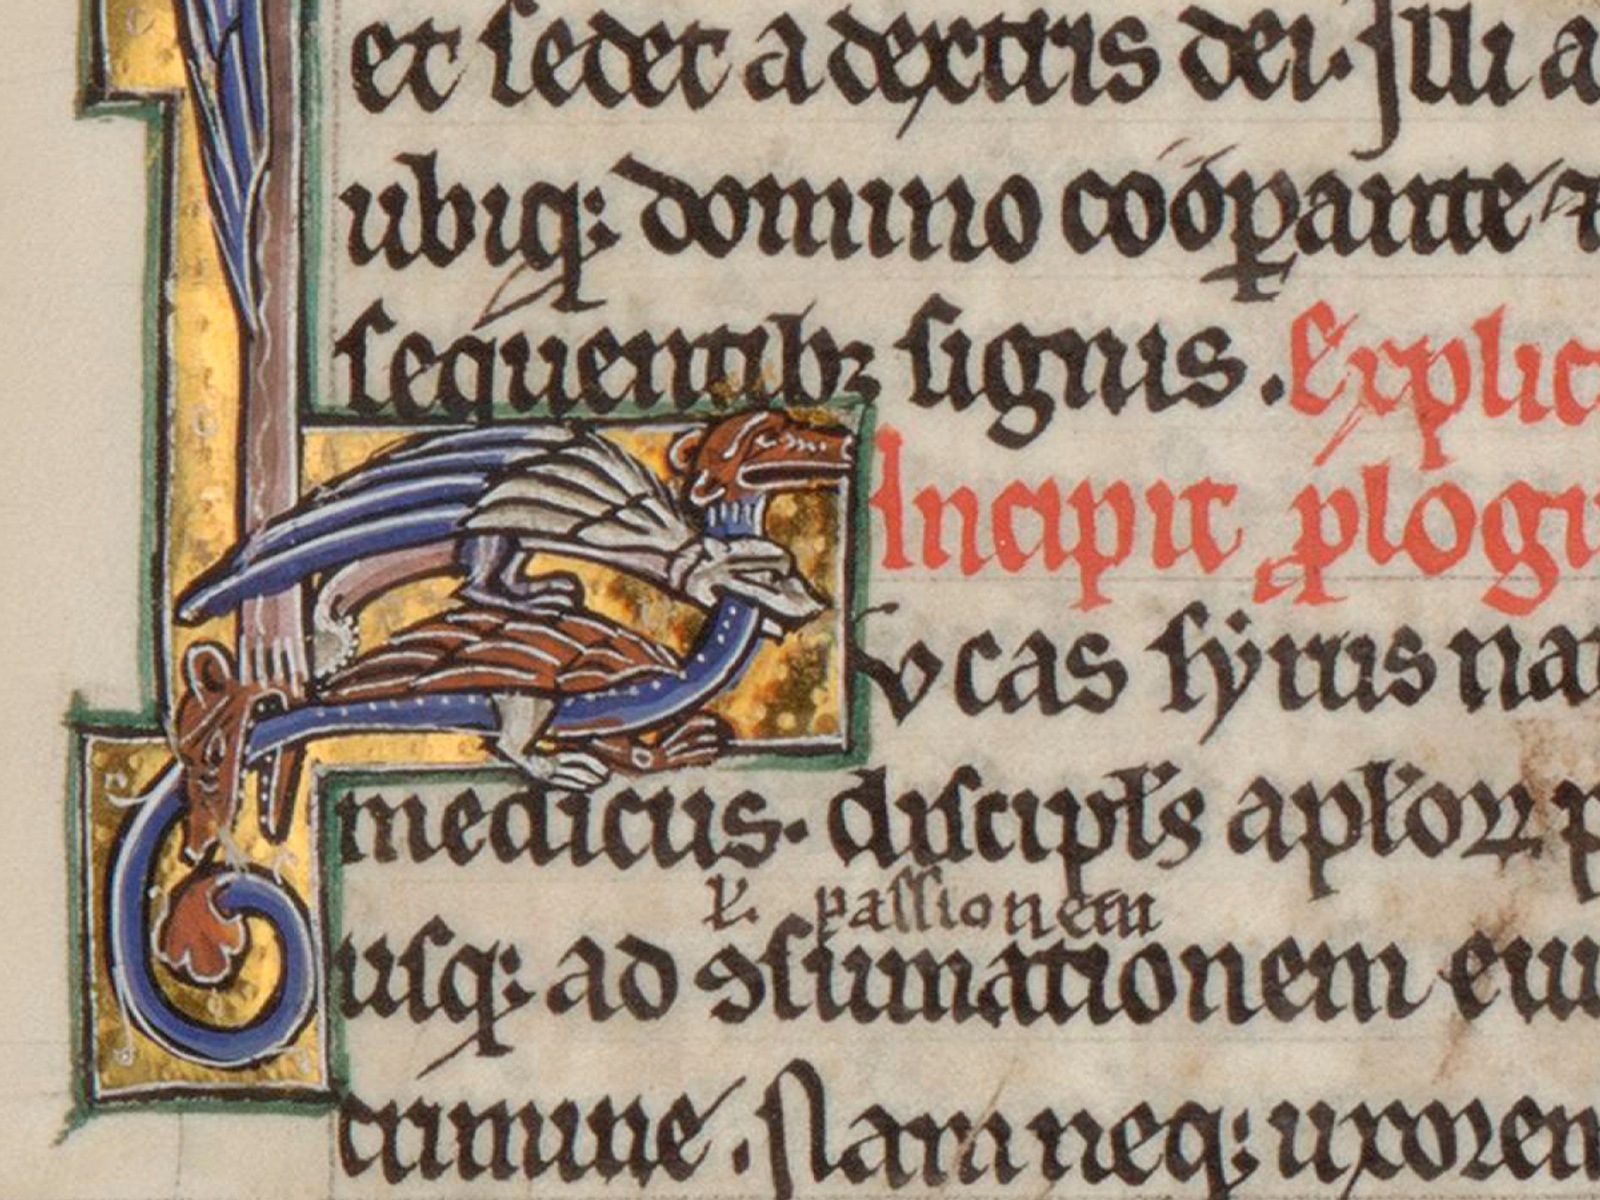 et sedet a dextris dei. Illi a
ubiq; domino coop̄ante ⁊
sequentibꝫ signis. Explic
Incipit ꝓlogu
vcas syrus nat
medicus. discipl̄s apl̄oꝝ p
ł. passionem
usq; ad ꝯsumationem eiu
crimine. Nam neq; uxorem